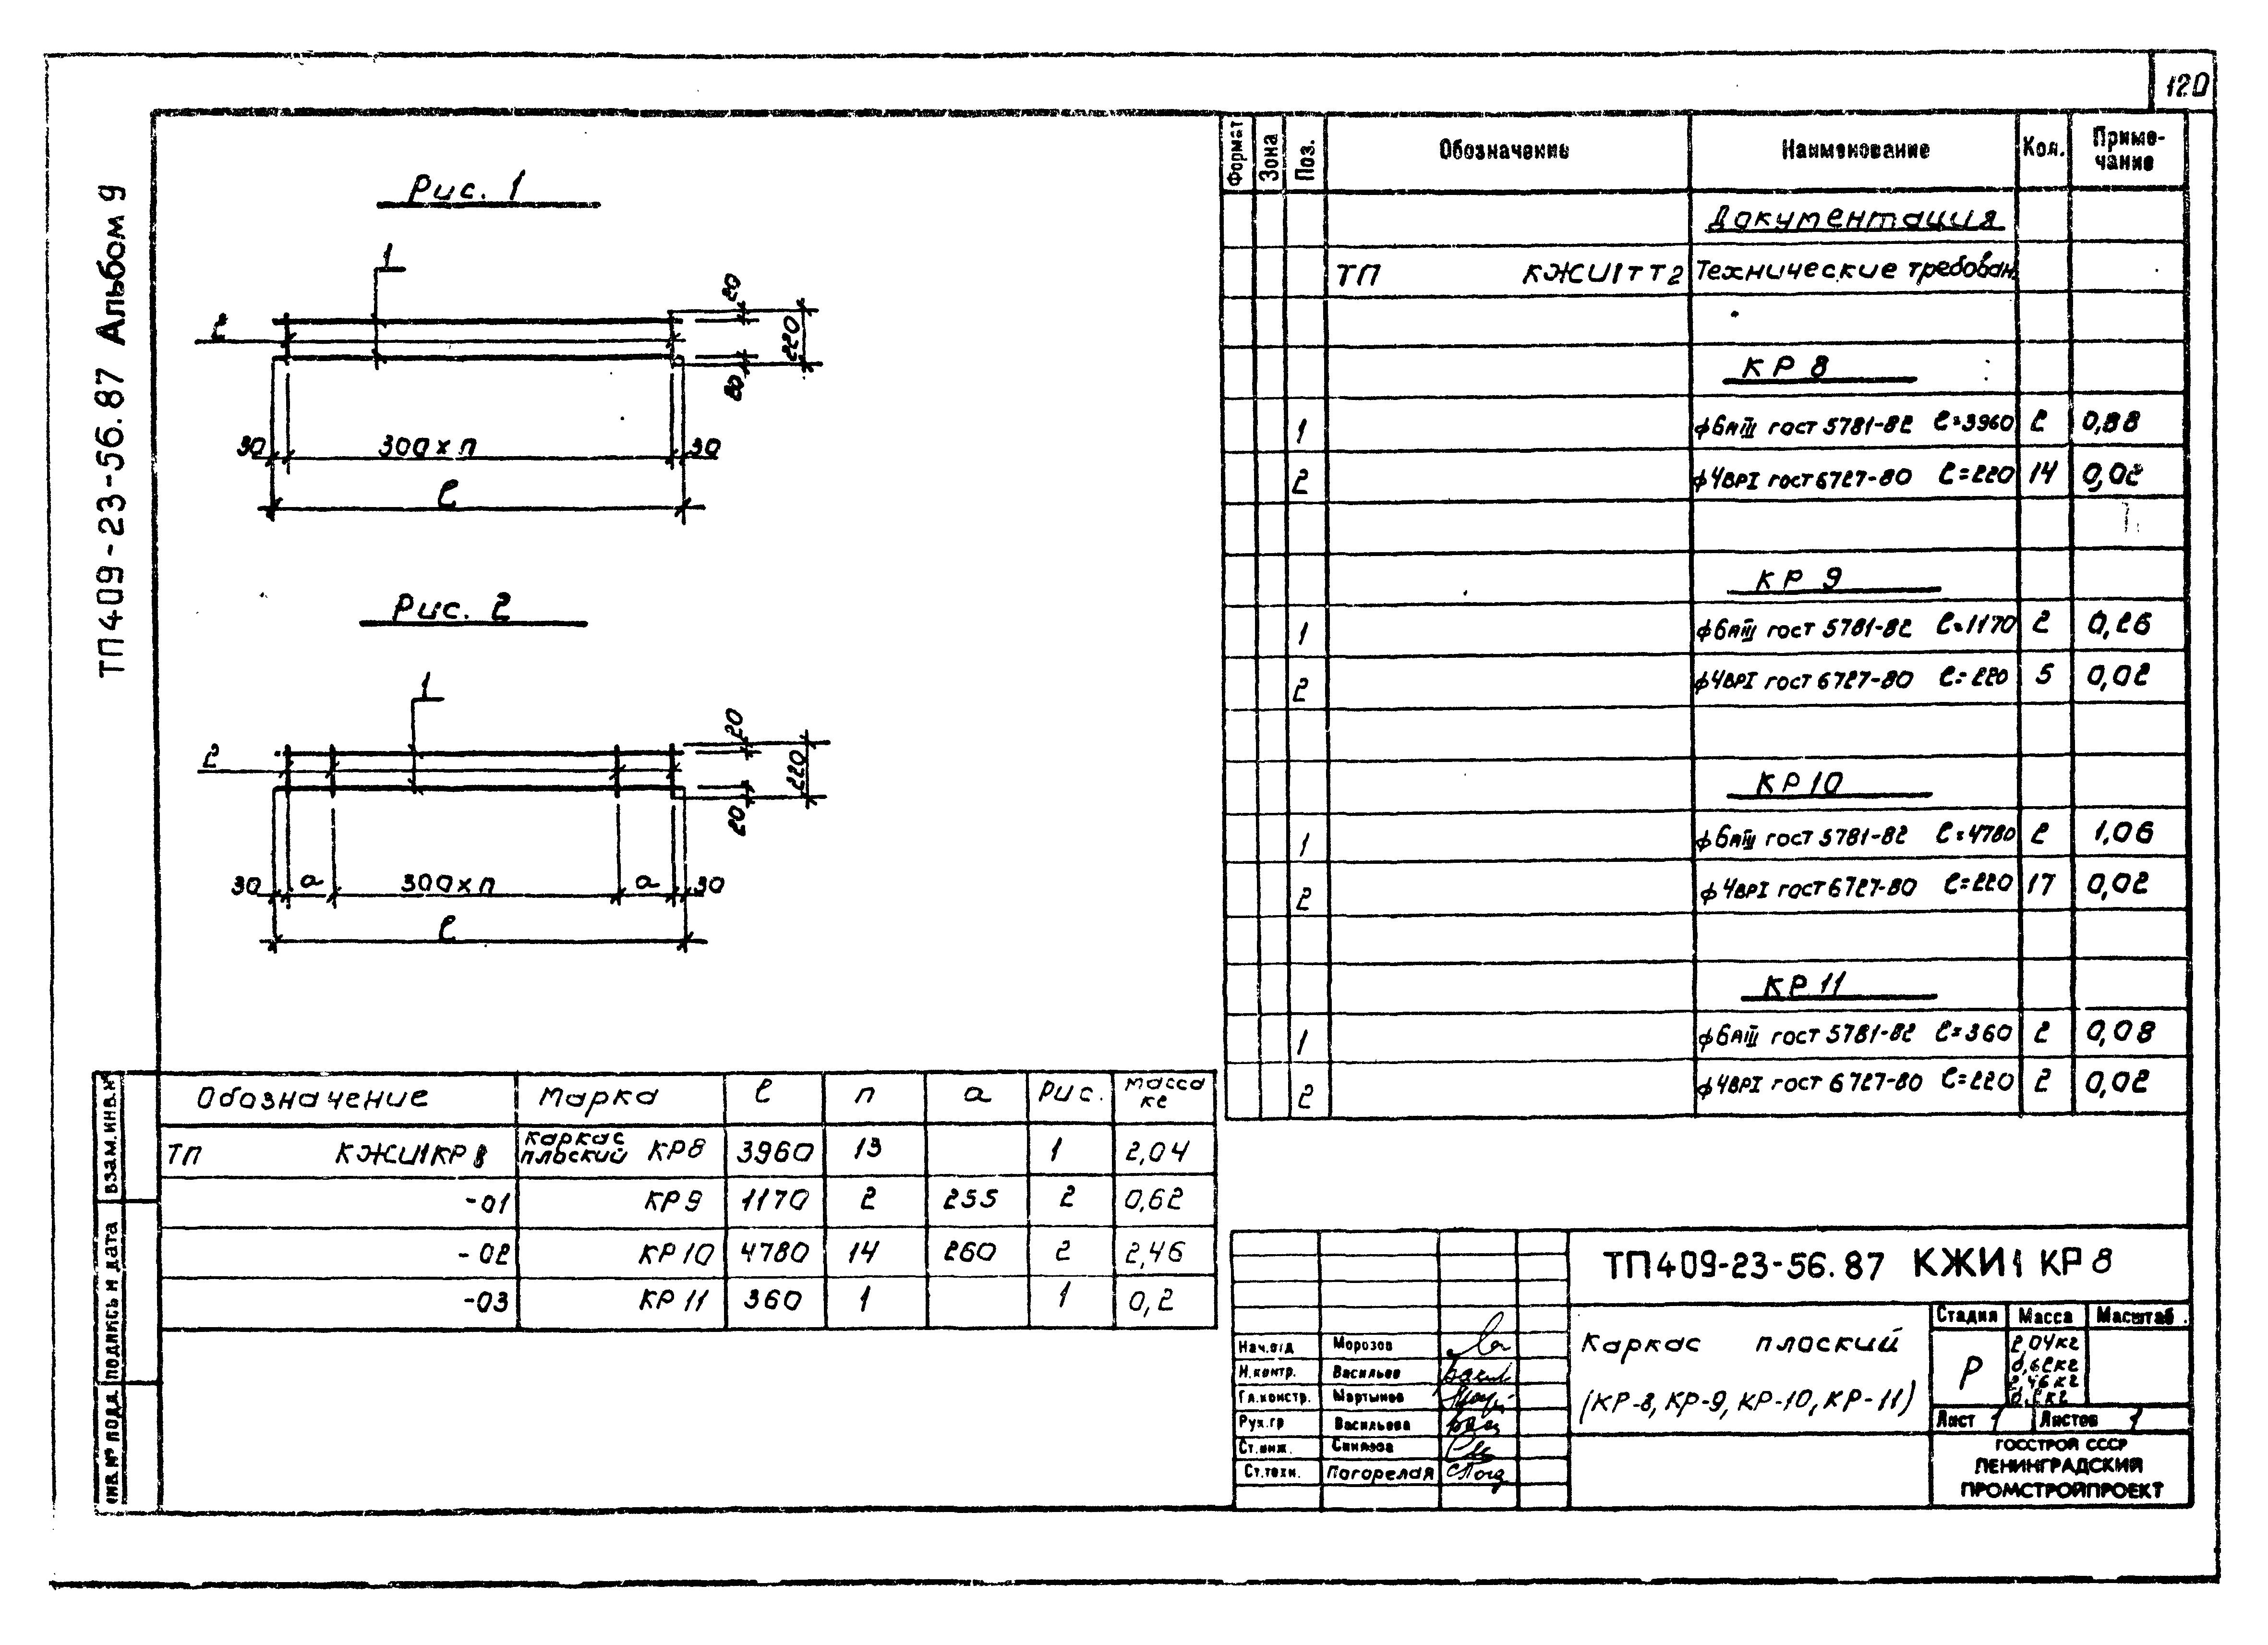 120
ТП409-23-56.87 Альбом 9
Рис. 1
1
2
20
220
80
30 300 х п 30
ℓ
Рис. 2
1
2
20
220
20
30 а 300 х п а 30
ℓ
Формат Зона Поз. Обозначение Наименование Кол. Приме-
чание
Документация
ТП КЖИ1ТТ2 Технические требован.
КР 8
1 ф6АIII ГОСТ 5781-82 ℓ=3960 2 0,88
2 ф4ВРI ГОСТ 6727-80 ℓ=220 14 0,02
КР 9
1 ф6АIII ГОСТ 5781-82 ℓ=1170 2 0,26
2 ф4ВРI ГОСТ 6727-80 ℓ=220 5 0,02
КР 10
1 ф6АIII ГОСТ 5781-82 ℓ=4780 2 1,06
2 ф4ВРI ГОСТ 6727-80 ℓ=220 17 0,02
КР 11
1 ф6АIII ГОСТ 5781-82 ℓ=360 2 0,08
2 ф4ВРI ГОСТ 6727-80 ℓ=220 2 0,02
Обозначение Марка ℓ п а Рис. Масса
кг
ТП КЖИ1КР 8 каркас плоский КР8 3960 13 1 2,04
-01 КР 9 1170 2 255 2 0,62
-02 КР 10 4780 14 260 2 2,46
-03 КР 11 360 1 1 0,2
ИНВ. № ПОДЛ. ПОДПИСЬ И ДАТА ВЗАМ. ИНВ. №
ТП409-23-56.87 КЖИ1 КР 8
Нач.отд Морозов
Н.контр. Васильев
Гл.констр. Мартынов
Рук.гр Васильева
Ст.инж.
Ст.техн. Погорелая
Каркас плоский
(КР-8, КР-9, КР-10, КР-11)
Стадия Масса Масштаб
Р
2,04кг
0,62кг
2,46кг
0,2кг
Лист 1 Листов 1
ГОССТРОЙ СССР
ЛЕНИНГРАДСКИЙ
ПРОМСТРОЙПРОЕКТ